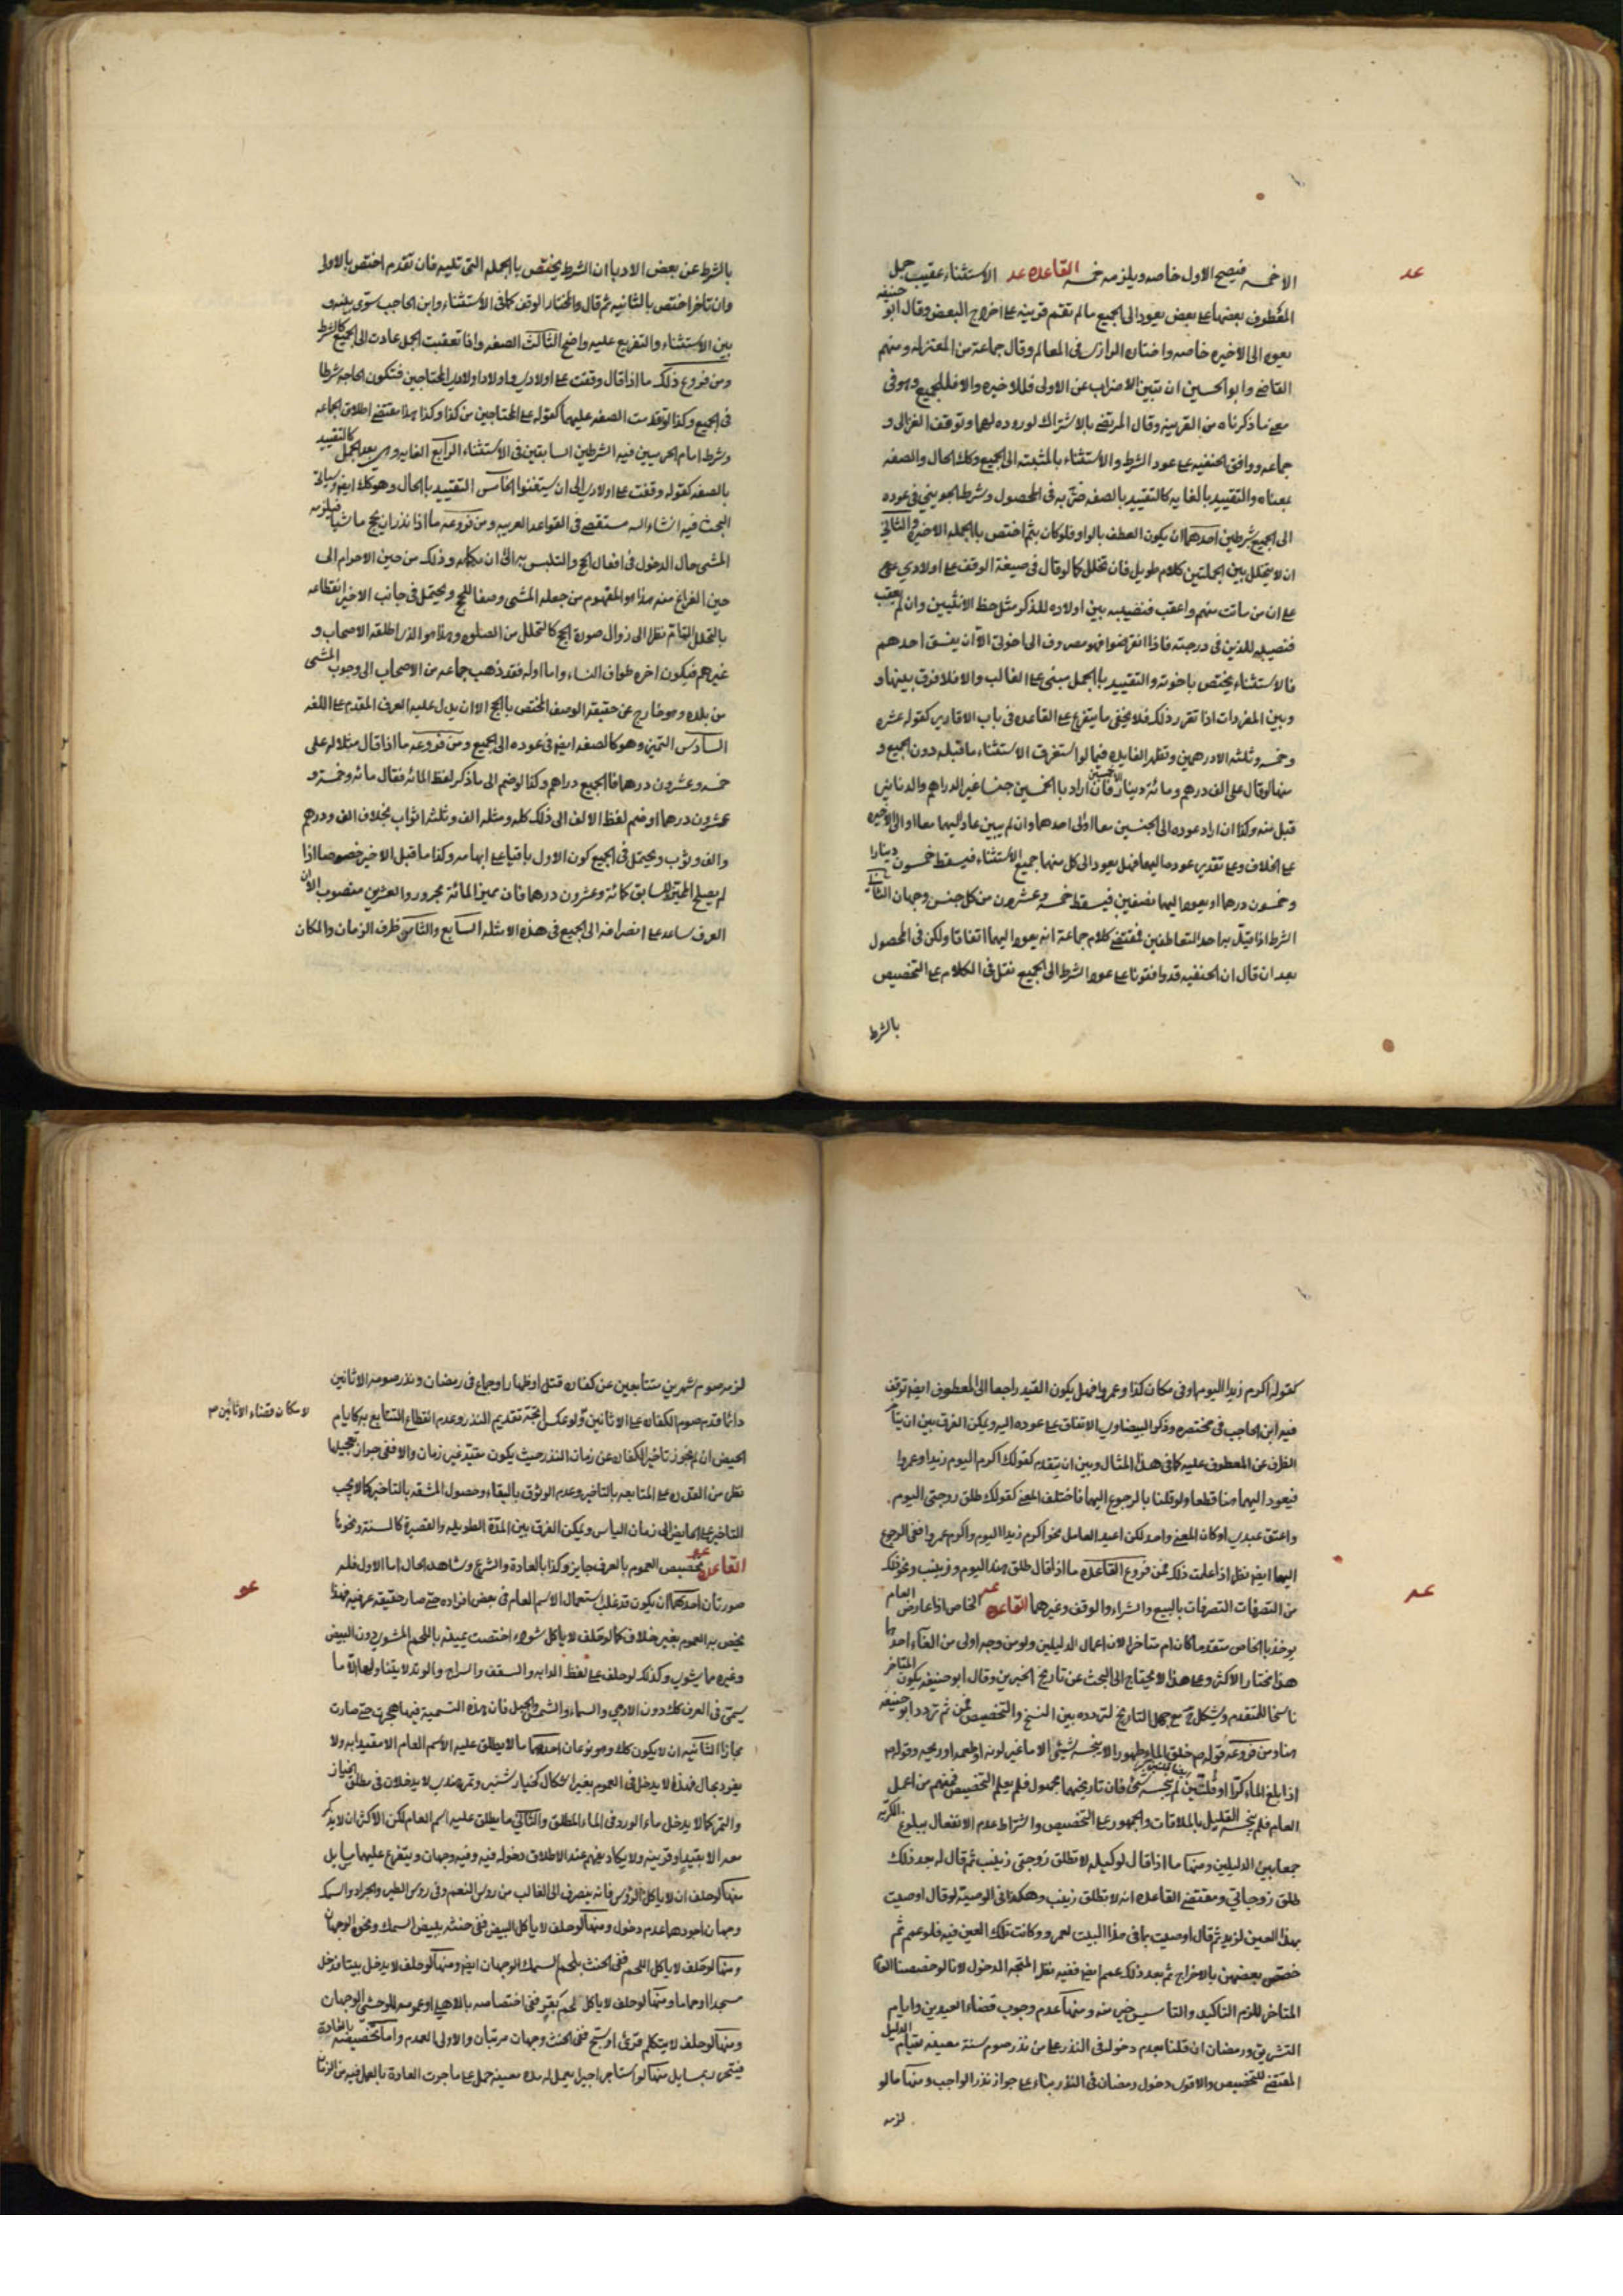 الا خمسه فيصح الاول خاصه ويلزمه خمسه القاعده عد الاستثناء عقيب جمل
عد
المعطوف بعضها على بعض يعود الى الجميع ما لم تقم قرينه على اخراج البعض وقال ابو حنيفه
يعود الى الاخيره خاصه واختاره الرازى فى المعالم وقال جماعة من المعتزله ومنهم
القاضى وابو الحسين ان تبين الاضراب عن الاولى فللاخيره والا فللجميع وهو فى
معنى ما ذكرناه من القرينه وقال المرتضى بالاشتراك لوروده لهما وتوقف الغزالى و
جماعه ووافق الحنفيه على عود الشرط والاستثناء بالمشية الى الجميع وكك الحال والصفه
بمعناه والتقييد بالغايه كالتقييد بالصفه صرّح به فى المحصول وشرط الجوينى فى عوده
الى الجميع شرطين احدهما ان يكون العطف بالواو فلو كان بثم اختص بالجمله الاخيره والثانى
ان لا يتخلل بين الجملتين كلام طويل فان تخلل كما لو قال فى صيغة الوقف على اولادي على
على ان من مات منهم واعقب فنصيبه بين اولاده للذكر مثل حظ الانثيين وان لم يعقب
فنصيبه للذين فى درجته فاذا انقرضوا فهو مصروف الى اخوتى الا ان يفسق احدهم
فالاستثناء يختص باخوته والتقييد بالجمل مبنى على الغالب والا فلا فرق بينها و
وبين المفردات اذا تقرر ذلك فلا يخفى ما يتفرع على القاعده فى باب الاقارير كقوله عشره
وخمسه وثلثه الا درهمين وتظهر الفايده فيما لو استغرق الاستثناء ما قبله دون الجميع و
منها لو قال على الف درهم ومائة دينار الا خمسين فان اراد بالخمسين جنسا غير الدراهم والدنانير
قبل منه وكذا ان اراد عوده الى الجنسين معا او الى احدهما وان لم يبين عاد اليهما معا او الى الاخيره
على الخلاف وعلى تقدير عوده اليهما فهل يعود الى كل منهما جميع الاستثناء فيسقط خمسون دينارا
وخمسون درهما او يعود اليهما نصفين فيسقط خمسه وعشرون من كل جنس وجهان الثانى
الشرط اذا قيّد به احد المتعاطفين فمقتضى كلام جماعة انه يعود اليهما اتفاقا ولكن فى المحصول
بعد ان قال ان الحنفيه قد وافقونا على عود الشرط الى الجميع نقل فى الكلام على التخصيص
بالشرط
بالشرط عن بعض الادبا ان الشرط يختص بالجمله التى تليه فان تقدم اختص بالاولى
وان تاخر اختص بالثانيه ثم قال والمختار الوقف كما فى الاستثناء وابن الحاجب سوّى بينه و
بين الاستثناء والتفريع عليه واضح الثالث الصفه واذا تعقبت الجمل عادت الى الجميع كالشرط
ومن فروع ذلك ما اذا قال وقفت على اولادى واولاد اولادى المحتاجين فتكون الحاجه شرطا
فى الجميع وكذا لو قدمت الصفه عليهما كقوله على المحتاجين من كذا وكذا هذا مقتضى اطلاق الجماعه
وشرط امام الحرمين فيه الشرطين السابقين فى الاستثناء الرابع الغايه وهى بعد الجمل كالتقييد
بالصفه كقوله وقفت على اولادى الى ان يستغنوا الخامس التقييد بالحال وهو كك ايضا وسياتى
البحث فيه انشاء الله مستقصى فى القواعد العربيه ومن فروعه ما اذا نذر ان يحج ماشيا فيلزمه
المشى حال الدخول فى افعال الحج والتلبس به الى ان يكمله وذلك من حين الاحرام الى
حين الفراغ منه هذا هو المفهوم من جعله المشى وصفا للحج ويحتمل فى جانب الاخير انقطاعه
بالتحلل التام نظرا الى زوال صورة الحج كالتحلل من الصلوه وهذا هو الذى اطلقه الاصحاب و
غيرهم فيكون اخره طواف النساء واما اوله فقد ذهب جماعه من الاصحاب الى وجوب المشى
من بلده وهو خارج عن حقيقة الوصف المختص بالحج الا ان يدل عليه العرف المقدم على اللغه
السادس التميز وهو كالصفه ايضا فى عوده الى الجميع ومن فروعه ما اذا قال مثلا له على
خمسه وعشرون درهما فالجميع دراهم وكذا لو ضم الى ما ذكر لفظ المائه فقال مائه وخمسة و
عشرون درهما او ضم لفظ الالف الى ذلك كله ومثله الف وثلثه اثواب بخلاف الف ودرهم
والف وثوب ويحتمل فى الجميع كون الاول باقيا على ابهامه وكذا ما قبل الاخير خصوصا اذا
لم يصلح المميز للسابق كمائة وعشرون درهما فان مميز المائة مجرور والعشرين منصوب الا ان
العرف ساعد على انصرافه الى الجميع فى هذه الامثله السابع والثامن ظرف الزمان والمكان
كقوله اكرم زيدا اليوم او فى مكان كذا وعمروا فهل يكون القيد راجعا الى المعطوف ايضا توقف
فيه ابن الحاجب فى مختصره وذكر البيضاوى الاتفاق على عوده اليه ويمكن الفرق بين ان يتاخر
الظرف عن المعطوف عليه كما فى هذا المثال وبين ان يتقدم كقولك اكرم اليوم زيدا وعمروا
فيعود اليهما هنا قطعا ولو قلنا بالرجوع اليهما فاختلف المعنى كقولك طلق زوجتى اليوم
واعتق عبدى او كان المعنى واحد لكن اعيد العامل نحو اكرم زيدا اليوم واكرم عمروا ففى الرجوع
اليهما ايضا نظر اذا علمت ذلك فمن فروع القاعده ما اذا قال طلق هندا اليوم وزينب ونحو ذلك
من التصرفات التصرفات بالبيع والشراء والوقف وغيرهما القاعده عه الخاص اذا عارض العام
عه
يوخذ بالخاص متقدما كان ام متاخرا لان اعمال الدليلين ولو من وجه اولى من الغاء احدهما
هذا مختار الاكثر وعلى هذا لا يحتاج الى البحث عن تاريخ الخبرين وقال ابو حنيفه يكون المتاخر
ناسخا للمتقدم ويشكل ح مع جهل التاريخ لتردده بين النسخ والتخصيص فمن ثم تردد ابو حنيفه
هنا ومن فروعه قوله ص خلق الماء طهورا لا ينجسه شيئ الا ما غير لونه او طعمه او ريحه وقوله ص
اذا بلغ الماء كرا او قلتين لم ينجسه شئ فان تاريخهما مجهول فلم يعلم التخصيص فمنهم من اعمل
العام فلم ينجس القليل بالملاقات والجمهور على التخصيص واشتراط عدم الانفعال ببلوغ الكريه
جمعا بين الدليلين ومنها ما اذا قال لوكيله لا تطلق زوجتى زينب ثم قال له بعد ذلك
طلق زوجاتى ومقتضى القاعده انه لا تطلق زينب وهكذا فى الوصية لو قال اوصيت
بهذا العين لزيد ثم قال اوصيت بما فى هذا البيت لعمرو وكانت تلك العين فيه فلو عمم ثم
خصص بعضهن بالاخراج ثم بعد ذلك عمم ايضا ففيه نظر المتجه الدخول لانا لو خصصنا العام
المتاخر للزم التاكيد والتاسيس خير منه ومنها عدم وجوب قضاء العيدين وايام
التشريق ورمضان ان قلنا بعدم دخوله فى النذر على من نذر صوم سنة معينه لقيام الدليل
المقتضى للتخصيص والاقوى دخول رمضان فى النذر بناء على جواز نذر الواجب ومنها ما لو
لزمه
لزمه صوم شهرين متتابعين عن كفارة قتل او ظهار او جماع فى رمضان ونذر صوم الاثانين
دائما قدم صوم الكفاره على الاثانين ولو عكس اتجه تقديم النذر وعدم انقطاع التتابع به كايام
لامكان قضاء الاثانين م
الحيض ان لم يجوز تاخير الكفاره عن زمان النذر حيث يكون مقيد بزمان والا ففى جواز تعجيلها
نظر من القدره على المتابعه بالتاخير وعدم الوثوق بالبقاء وحصول المشقه بالتاخير كما لا يجب
التاخير على الحايض الى زمان الياس ويمكن الفرق بين المدة الطويله والقصيرة كالسنة ونحوها
القاعده عو تخصيص العموم بالعرف جايز وكذا بالعادة والشرع وشاهد الحال اما الاول فله
عو
صورتان احدهما ان يكون قد غلب استعمال الاسم العام فى بعض افراده حتى صار حقيقه عرفيه فهذا
يخص به العموم بغير خلاف كما لو حلف لا ياكل شواء اختصت يمينه باللحم المشوى دون البيض
وغيره مما يشوى وكذلك لو حلف على لفظ الدابه والسقف والسراج والوتد لا يتناول الا ما
يسمى فى العرف كك دون الادمى والسماء والشمس والجبل فان هذه التسمية فيها هجرت حتى صارت
مجازا الثانيه ان لا يكون كك وهو نوعان احدهما ما لا يطلق عليه الاسم العام الا مقيدا به ولا
يفرد بحال فهذا لا يدخل فى العموم بغير اشكال كخيار شنبر وتمر هندى لا يدخلان فى مطلق الخيار
والتمر كما لا يدخل ماء الورد فى الماء المطلق والثانى ما يطلق عليه اسم العام لكن الاكثر ان لا يذكر
معه الا بقيد او قرينه ولا يكاد يفهم عند الاطلاق دخوله فيه وفيه وجهان ويتفرع عليهما مسايل
منها لو حلف ان لا ياكل الرؤس فانه ينصرف الى الغالب من روس النعم وفى روس الطير والجراد والسمك
وجهان اجودهما عدم دخول ومنها لو حلف لا ياكل البيض ففى حنثه ببيض السمك ونحوه الوجهان
ومنها لو حلف لا ياكل اللحم ففى الحنث بلحم السمك الوجهان ايضا ومنها لو حلف لا يدخل بيتا فدخل
مسجدا او حماما ومنها لو حلف لا ياكل لحم بقر ففى اختصاصه بالاهلى او عمومه للوحشى الوجهان
ومنها لو حلف لا يتكلم فقرئ او سبح ففى الحنث وجهان مرتبان والاولى العدم واما تخصيصه بالعادة
فيتحرر بمسايل منها لو استاجر اجيرا يعمل له مدة معينه حمل على ما جرت العادة بالعمل فيه من الزمان